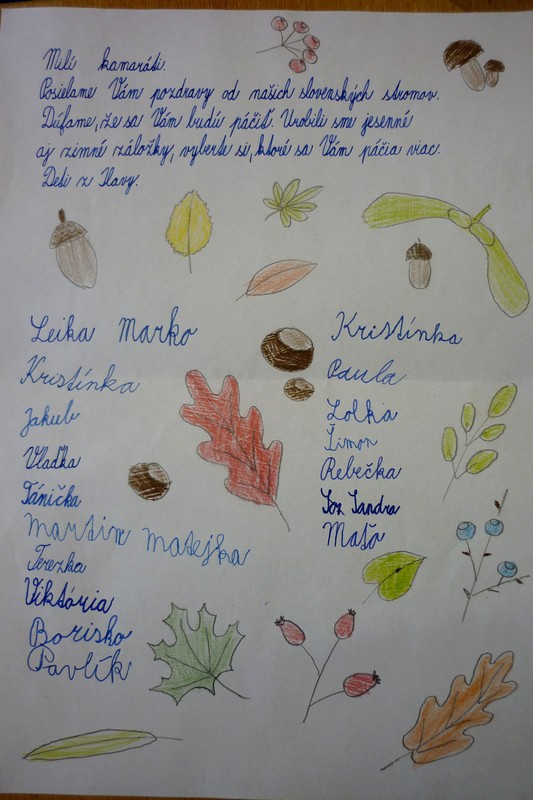 Milí kamaráti.
Posielame Vám pozdravy od našich slovenských stromov.
Dúfame, že sa Vám budú páčiť. Urobili sme jesenné
aj zimné záložky, vyberte si, ktoré sa Vám páčia viac.
Deti z Ilavy.
Leika Marko
Kristínka
Jakub
Vlaďka
Tánička
Martin Matejka
Terezka
Viktória
Borisko
Pavlík
Kristínka
Paula
Lolka
Šimon
Rebečka
Sandra
Maťo